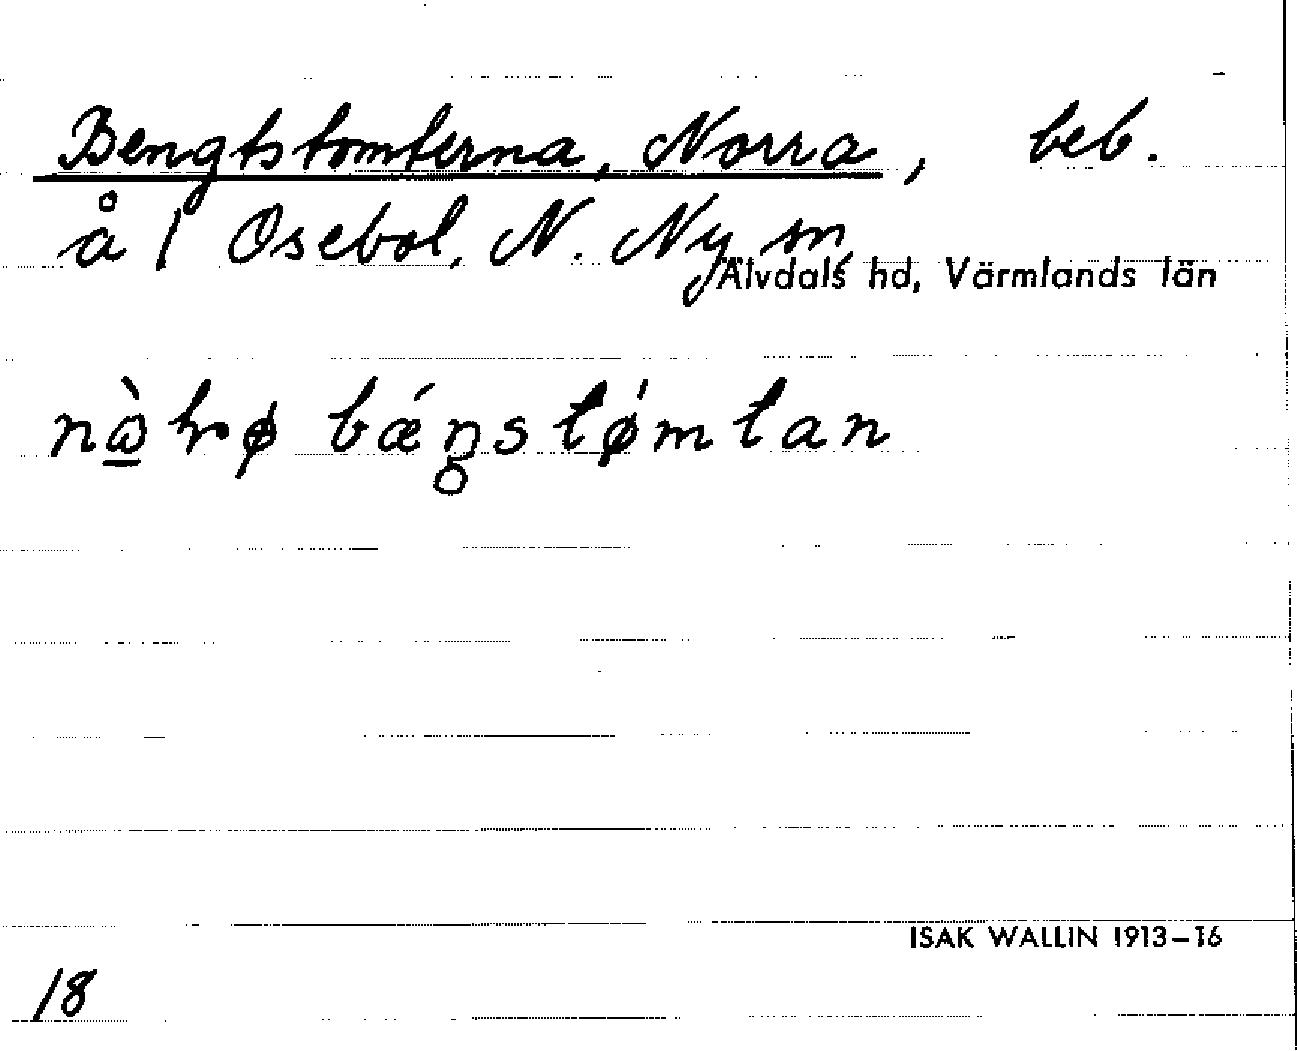 Bengtstomterna, Norra, beb.
å 1 Osebol, N. Ny sn
Älvdals hd, Värmlands län
nὼrø bǽŋstǿmtan
ISAK WALLIN 1913–16
18